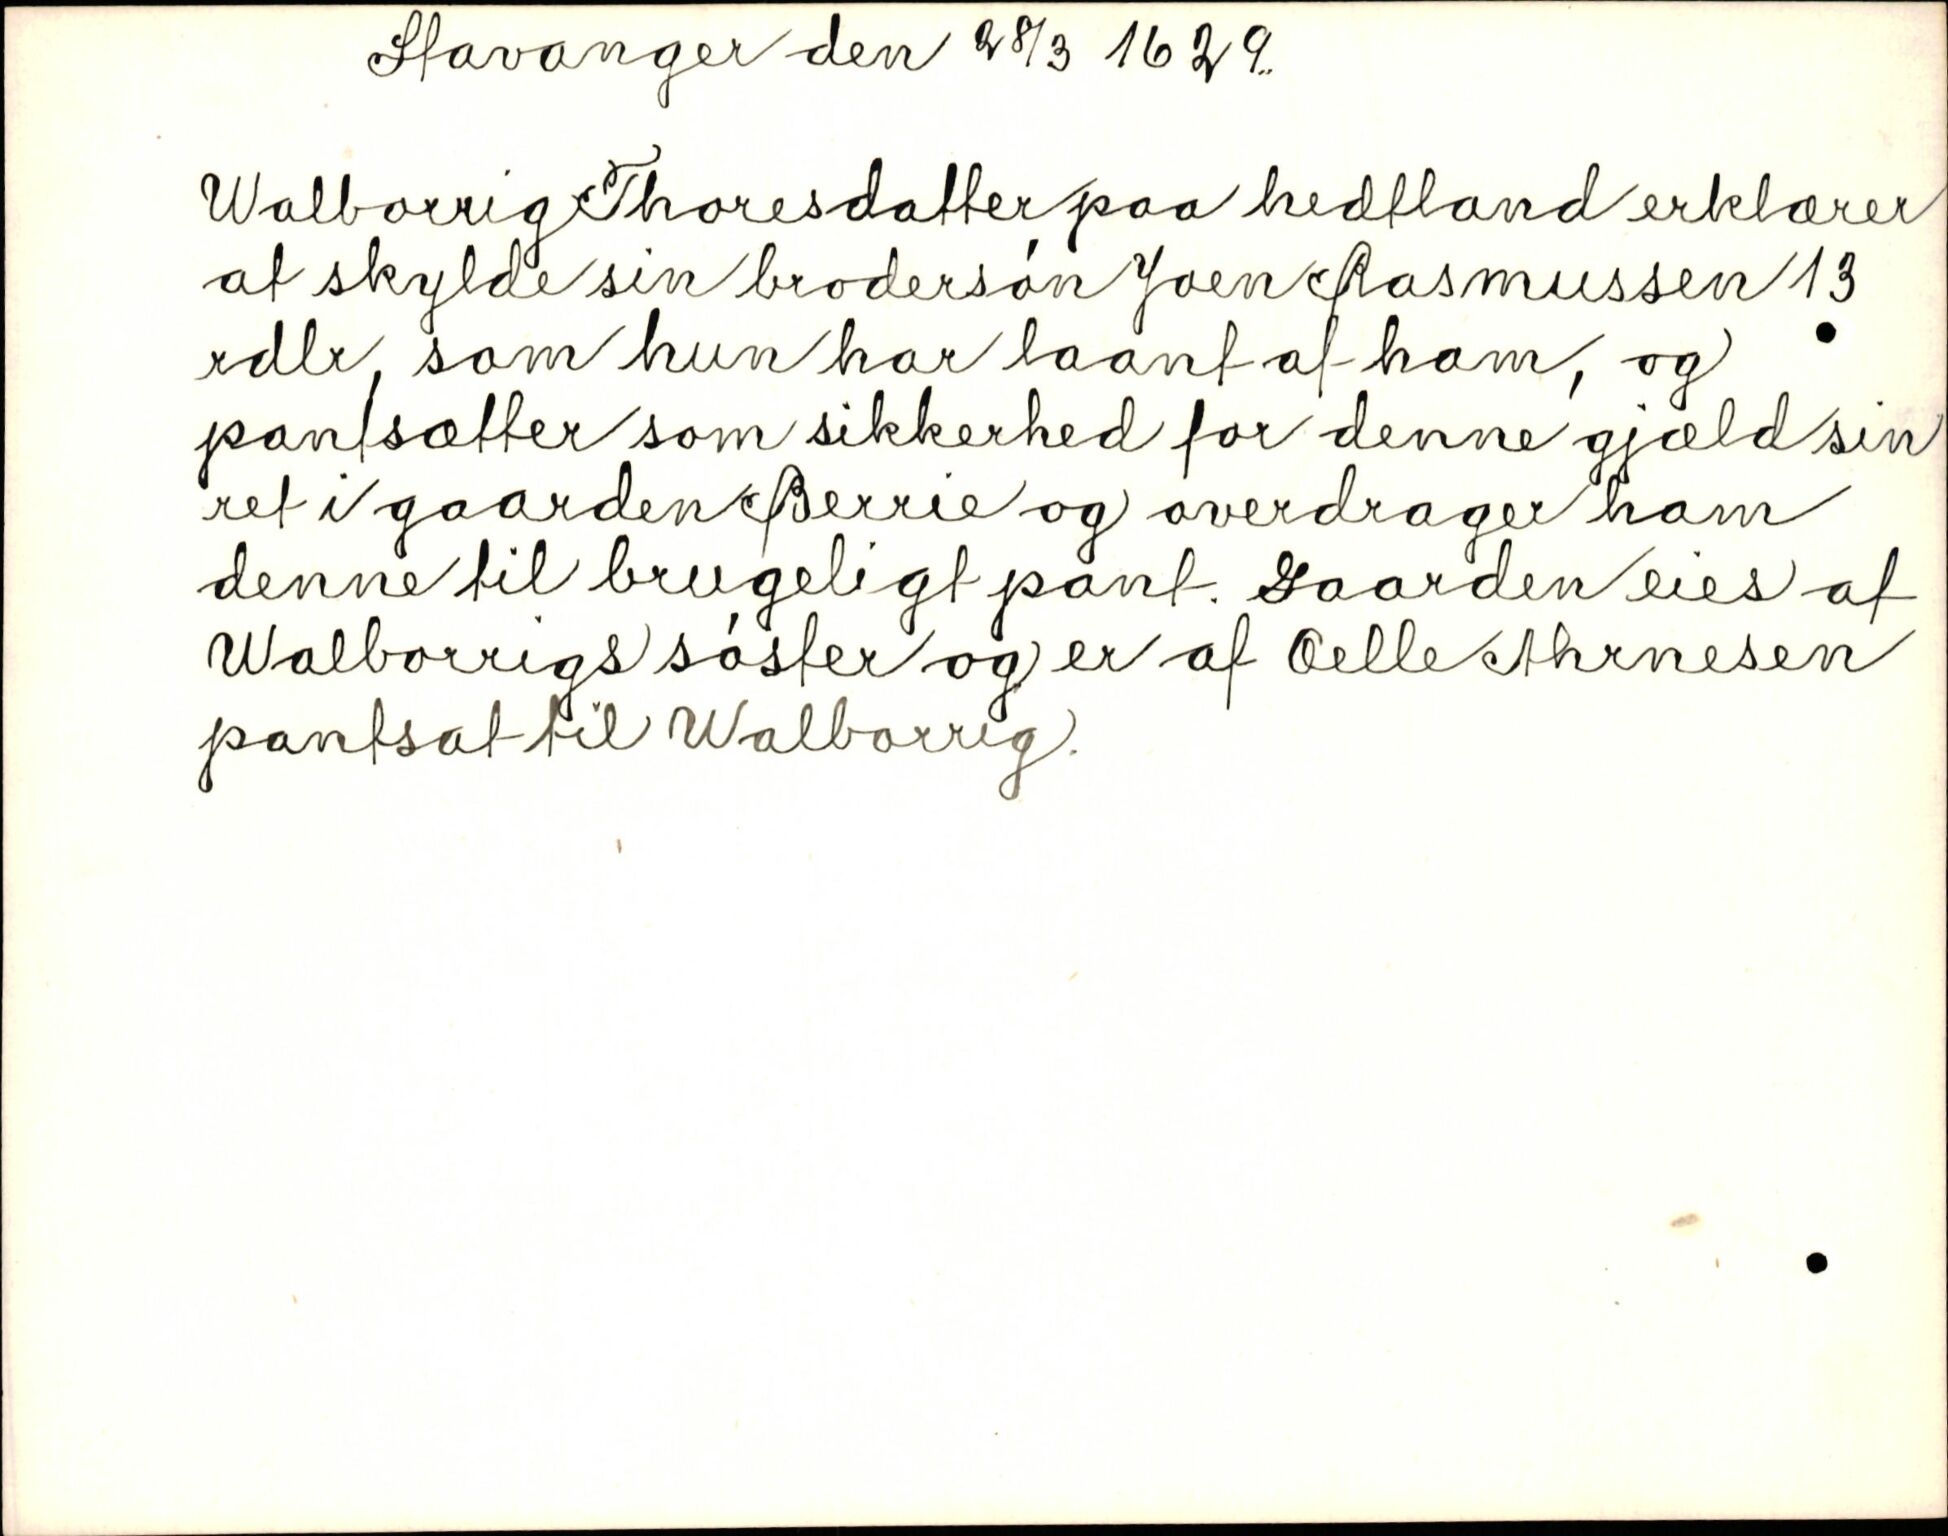 Stavanger den 28/3 1629.
Walborrig Thoresdatter paa hedtland erklærer
at skylde sin brodersón Joen Rasmussen 13
rdlr, som hun har laant af ham, og
pantsætter som sikkerhed for denne gjæld sin
ret i gaarden Berrie og overdrager ham
denne til brugeligt pant. Gaarden eies af
Walborrigs sóster og er af Oelle Ahrnesen
pantsat til Walborrig.